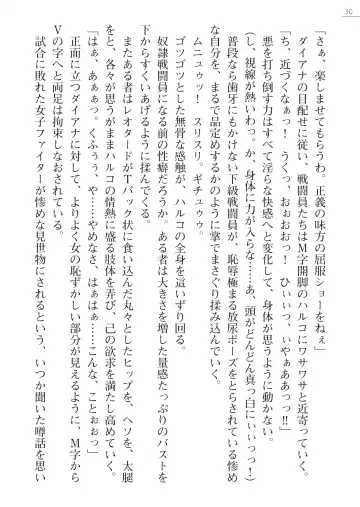 30
「さぁ、楽しませてもらうわ。正義の味方の屈服ショーをねぇ」
ダイアナの目配せに従い、戦闘員たちはM字開脚のハルコにワサワサと近寄っていく。
「ち、近づくなぁっ！　うくっ、おぉおおっ！　ひぃいっ、いやぁああっっ!!」
悪を打ち倒す力はすべて淫らな快感へと変化して、身体が思うように動かない。
（し、視線が熱いわっ。か、身体に力が入らな……あ、頭がどんどん真っ白にいいっっ！）
普段なら歯牙にもかけない下級戦闘員が、恥辱極まる放尿ポーズをとらされている惨め
な自分を、まるで品定めするかのように掌でまさぐり揉み込んでいく。
ムニュウッ！　スリスリ。ギチュウゥ。
ゴツゴツとした無骨な感触が、ハルコの全身を這いずり回る。
奴隷戦闘員になる前の性癖だろうか。ある者は大きさを増した量感たっぷりのバストを
下からすくいあげるように揉んでくる。
またある者はレオタードがTバック状に食い込んだ丸々としたヒップを、ヘソを、太腿
を、と、各々が思うがままハルコの情熱に盛る肢体を弄び、己の欲求を満たし高めていく。
「はぁ、あぁっ……くふぅぅ、や……やめなさ、はぁはぁ……こんな、ことぉぉっ」
正面に立つダイアナに対して、よりよく女の恥ずかしい部分が見えるように、M字から
Vの字へと両足は拘束しなおされている。
試合に敗れた女子ファイターが惨めな見世物にされるという、いつか聞いた噂話を思い